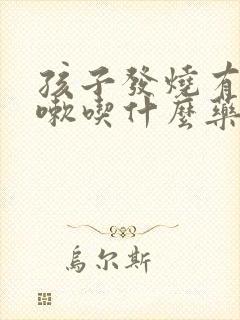 孩子發燒有
嗽喫什麼藥
烏尔斯